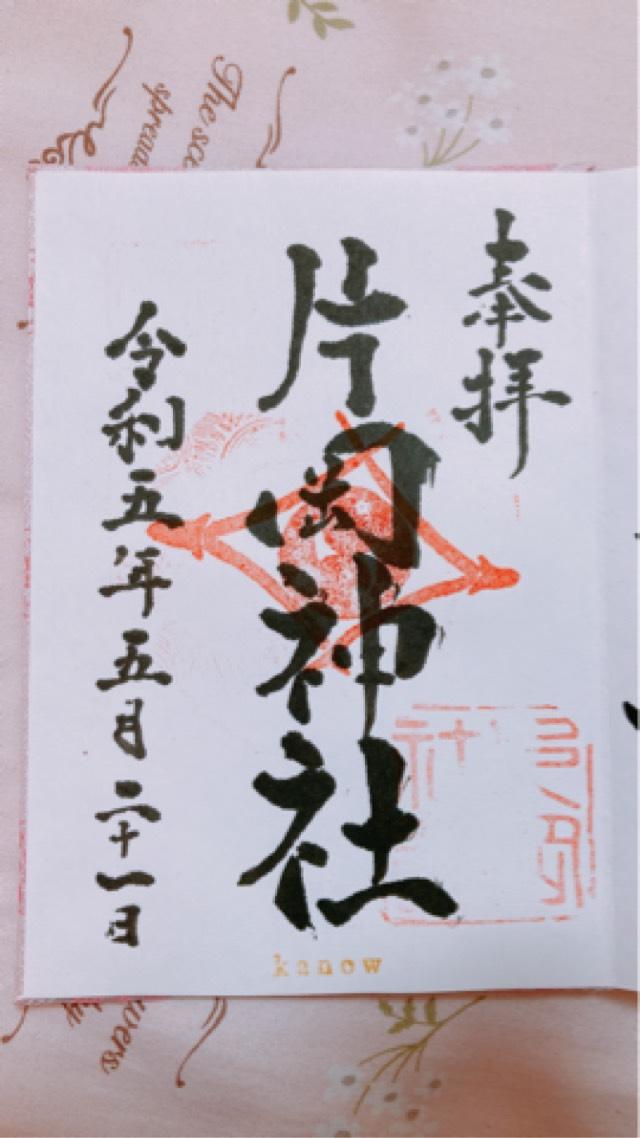 奉拝
片岡神社
令和五年五月二十一日
kanow
The